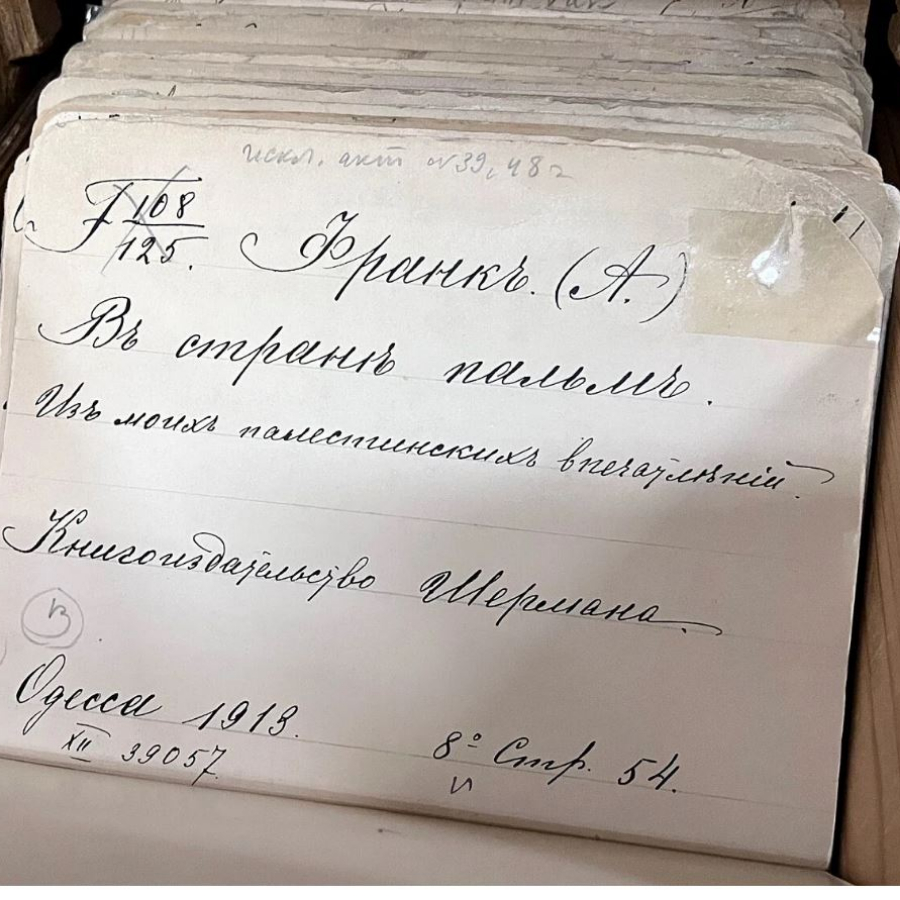 искл. акт №39, 48 г
F 108/125. Франкъ. (А.)
Въ странѣ пальмъ.
Изъ моихъ палестинскихъ впечатлѣній.
Книгоиздательство Шермана.
В
Одесса 1913.
XII 39057.
8º Стр. 54.